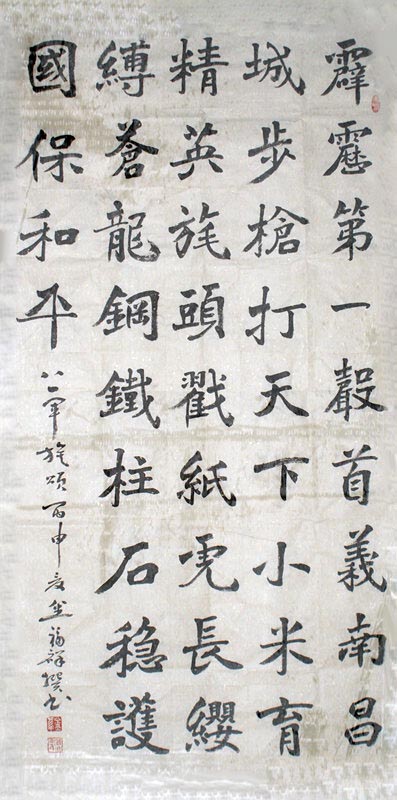 霹靂第一聲首義南昌
城步槍打天下小米育
精英旄頭戳紙虎長纓
縛蒼龍鋼鐵柱石稳護
國保和平
八一軍旄頌 丙申夏 金福群撰书